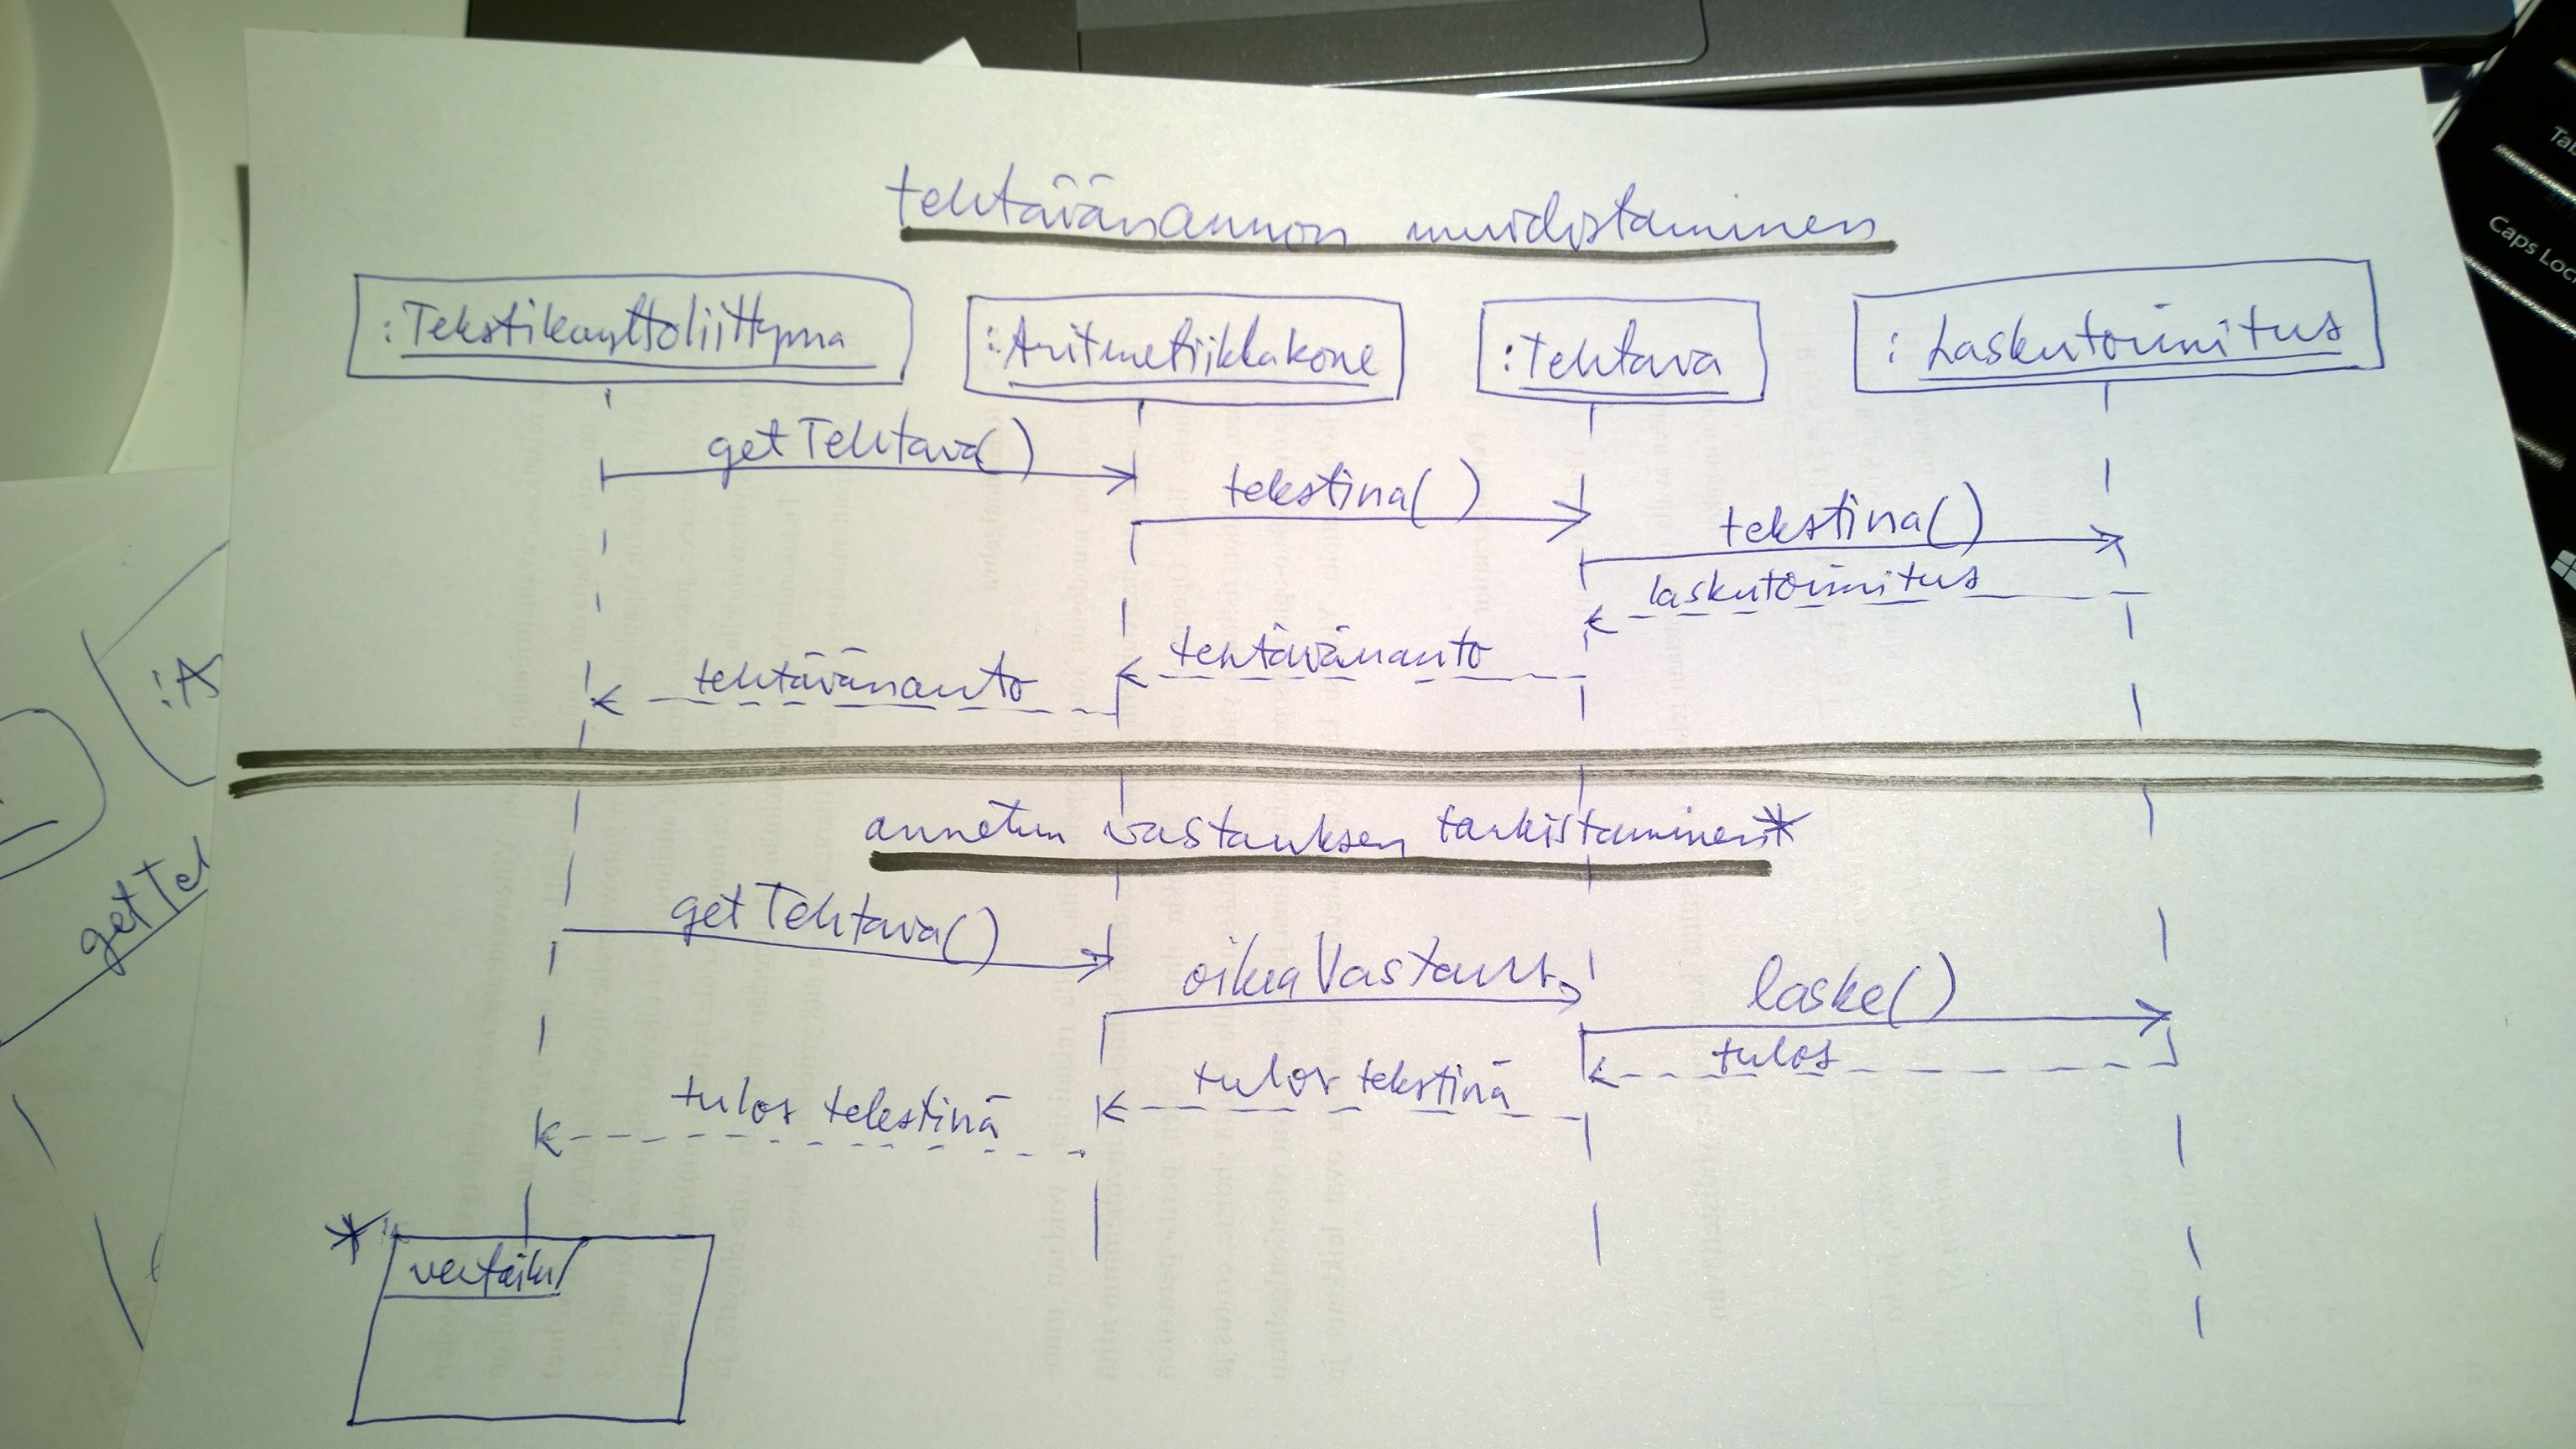 tehtävänannon muodostaminen
:Tekstikayttoliittyma
:Aritmetiikkakone
:Tehtava
:Laskutoimitus
getTehtava()
tekstina()
tekstina()
laskutoimitus
tehtävänanto
tehtävänanto
annetun vastauksen tarkistaminen*
getTehtava()
oikeaVastaus
laske()
tulos
tulos tekstinä
tulos tekstinä
* vertailu
:A
getTel
Tab
Caps Loc